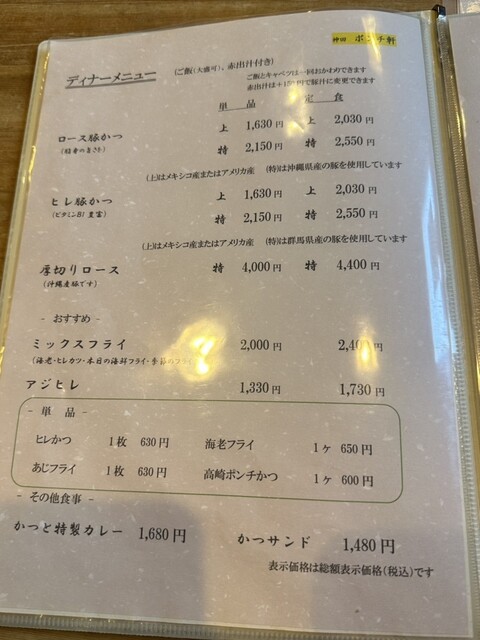 神田 ポンチ軒
ディナーメニュー (ご飯(大盛可)、赤出汁付き)
ご飯とキャベツは一回おかわりできます
赤出汁は+150円で豚汁に変更できます
単品 定食
ロース豚かつ 上 1,630円 上 2,030円
特 2,150円 特 2,550円
(上)はメキシコ産またはアメリカ産 (特)は沖縄県産の豚を使用しています
ヒレ豚かつ 上 1,630円 上 2,030円
(ビタミンB1 豊富) 特 2,150円 特 2,550円
(上)はメキシコ産またはアメリカ産 (特)は群馬県産の豚を使用しています
厚切りロース 特 4,000円 特 4,400円
(沖縄産豚です)
- おすすめ -
ミックスフライ 2,000円 2,40 円
(海老・ヒレカツ・本日の海鮮フライ・季節のフライ
アジヒレ 1,330円 1,730円
- 単品 -
ヒレかつ 1枚 630円 海老フライ 1ヶ 650円
あじフライ 1枚 630円 高崎ポンチかつ 1ヶ 600円
- その他食事 -
かつと特製カレー 1,680円 かつサンド 1,480円
表示価格は総額表示価格(税込)です